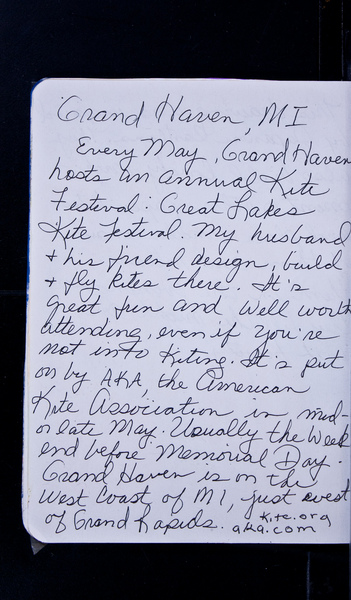 Grand Haven, MI
Every May, Grand Haven
hosts an annual Kite
Festival: Great Lakes
Kite Festival. My husband
+ his friend design, build
+ fly kites there. It's
great fun and well worth
attending, even if you're
not into Kiting. It's put
on by AKA, the American
Kite Association in mid-
or late May. Usually the Week
end before Memorial Day.
Grand Haven is on the
West Coast of MI, just west
of Grand Rapids. Kite.org
aka.com